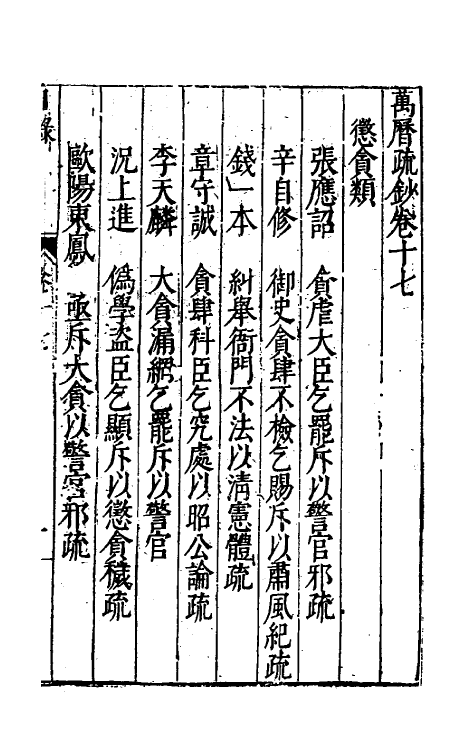 萬曆疏鈔卷十七
懲貪類
張應詔 貪虐大臣乞罷斥以警官邪疏
辛自修 御史貪肆不檢乞賜斥以肅風紀疏
錢一本 糾舉衙門不法以清憲體疏
章守誠 貪肆科臣乞究處以昭公論疏
李天麟 大貪漏網乞罷斥以警官
況上進 偽學盜臣乞顯斥以懲貪穢疏
歐陽東鳳 亟斥大貪以警官邪疏